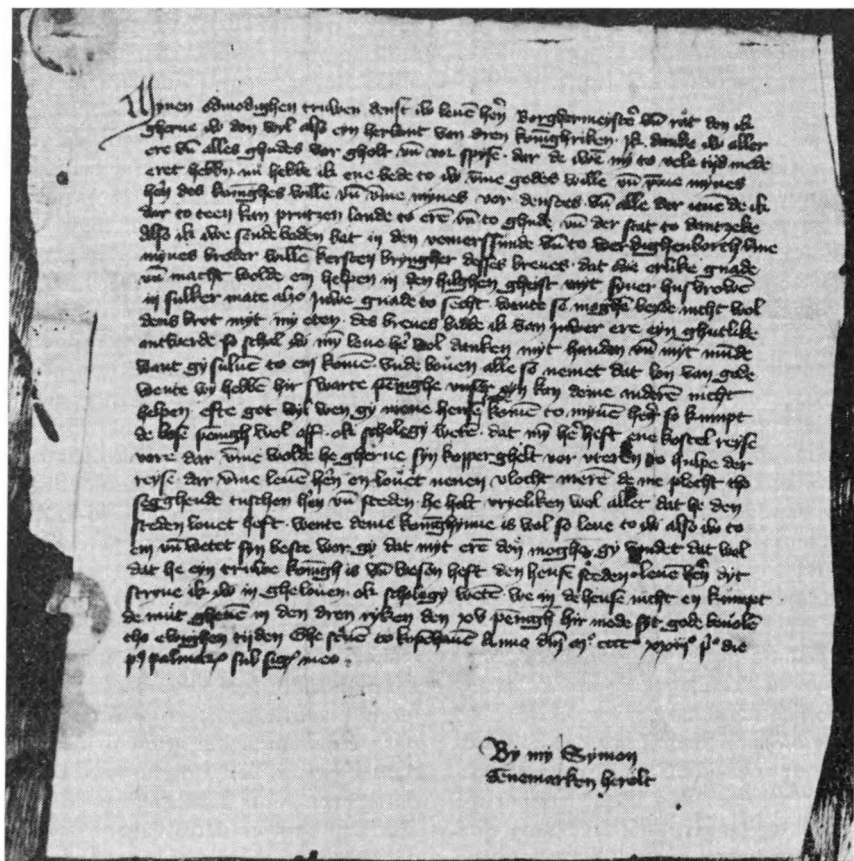 Mynen odmodighen truwen denst iw leuen hern Borghermeyster vnde rat don ik
gherne iw don wyl also eyn herlant van dren konighriken. ik danke iw aller
ere vnde alles ghudes vor gholt vnde vor spyse. dar de iwe my to vele tyd mede
eret hebben vnde hebbe ik ene bede to iw vme godes wille vnde vme mynes
heren des konighes wille vnde vme mynes vor denstes. vnde alle der ienen de ik
dar to teen kan prutzen lande to eren vnde to ghude vnde der stat to dantzeke
also ik iwe sende baden hat in den vemerssunde vnde to werdighenborch vme
mynes broder willen kersten bryngher desses breues. dat iwe erlike gnade
vnde macht wolde em helpen in den hilghen gheist myt syner husvrowen
in sulker mate also iuwe gnade to secht. wente so moghe beyde nicht wol
dens brot myt my eten. des breues bidde ik van iuwer ere eyn ghutlike
antwerde so schal iw myn leue her wol danken myt handen vnde myt munde
want gy suluen to em komen. vnde bouen alle so nemet dat lon van gode
wente wy hebben hir swarte penighe eyn kan deme anderen nicht
helpen efte got wyl wen gy mene hense komen to mynen heren so kumpt
de bose penigh wol off. ok schole gy weten. dat myn her heft ene kostel reyse
vore dar vme wolde he gherne syn kopperghelt vor vteren to hulpe der
reyse. dar vme leuen hern en louet nenen vlocht meren de me plecht tho
segghende tuschen hern vnde steden. he holt vryeliken wol allet dat he den
steden louet heft. wente deme konighynne is wol so leue to iw also iw to
em vnde wetet syn beste vor. gy dat myt eren don moghen gy vyndet dat wol
dat he eyn truwe konigh is vnde wesen heft den hense steden. leuen hern dyt
scryue ik iw in ghelouen. ok schole gy weten we in de hense nicht en kumpt
de mut gheuen in den dren ryken den xv penigh hir mede syt gode beuolen
tho ewighen tijden Ghescreuen to kopenhauen Anno domini mº ccccº xxiiiº die
post palmarum sub sigillo meo.
By my Symon
Denemarken herolt